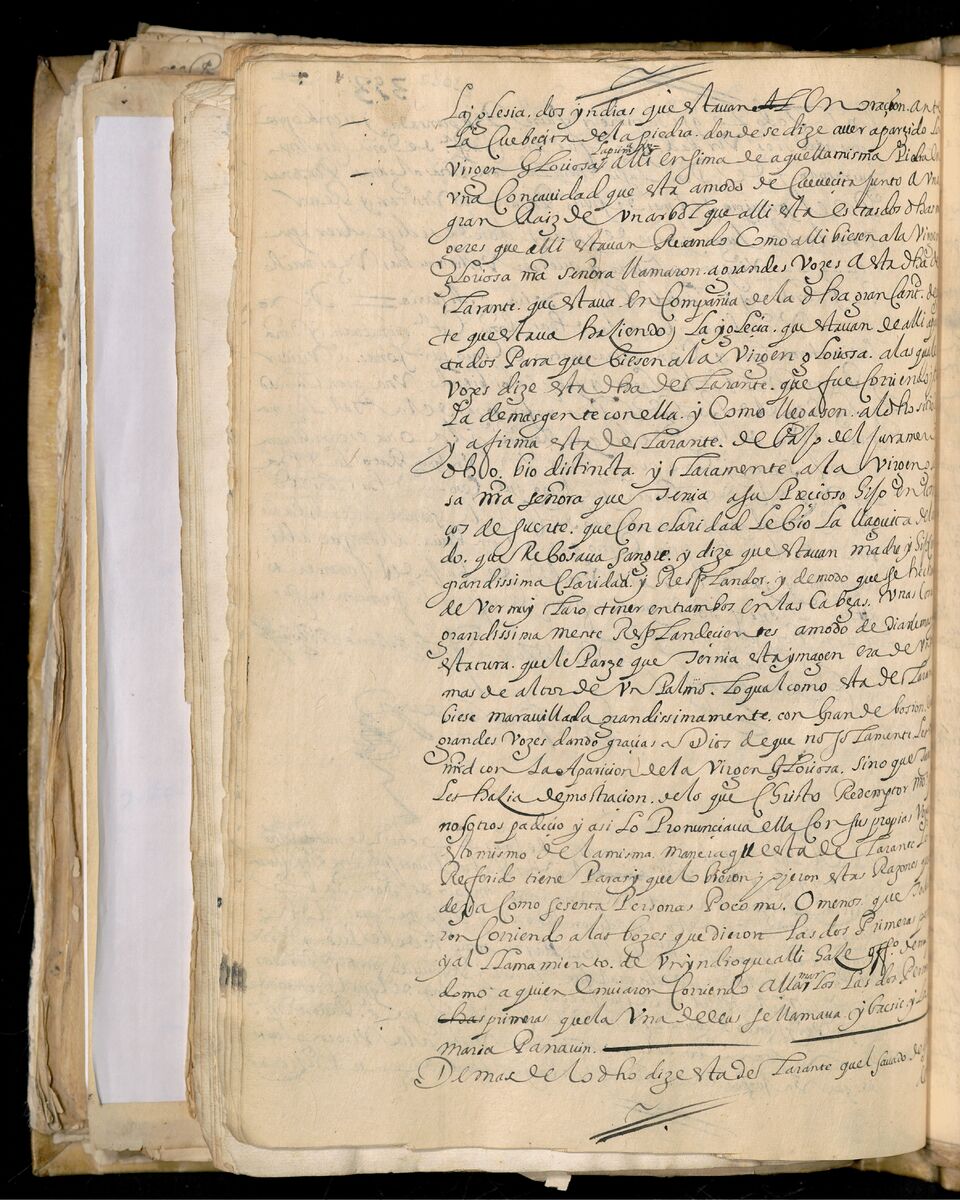 La yglesia. dos yndias que estauan En oraçion. ante
La Cuebecita de la piedra. donde se dize auer aparezido La
Virgen Gloriosa, alli ensima de aquella misma Piedra
vna Concauidad que esta amodo de Cuevecita Junto a vna
gran Raiz de vn arbol que alli esta estas dos dhas
geres que alli estauan Rezando Como alli biesen a la Virgen
gloriosa nra señora llamaron. a grandes Vozes a esta dha de
Tarante. que estaua. en Compañia de la dha gran Cantd. de
te que estaua haziendo La yglecia. que estauan de alli
tados Para que biesen a la Virgen gloriosa. a las quales
Vozes dize esta dha decTarante. que fue Corriendo
La demas gente con ella. y Como llegasen. al dho sitio
y afirma esta decTarante. debajo del Jurament
dho, bio distincta. y Claramente. a la Virgen
sa nra señora que Tenia a su Precioso Hijo en
ços de suerte. que Con claridad Le bio La llaguita del
do. que Rebosaua sangre. y dize que estauan madre y Hijo
grandissima Claridad. y Resplandor. y demodo que se
de Ver muy Claro. tener entrambos. en las Cabeças. Vnas
grandissima mente Resplandecientes amodo de diademas
estatura. que le Pareze que Ternia esta ymagen era de
mas de altor de Vn Palmo. Lo qual como esta decTaran
biese marauillada grandissimamente. con Grande
grandes Vozes dando gracias a Dios de que no so Lamente Les
mrd con La Aparicion de la Virgen Gloriosa. sino que
Les hazia demostracion. de lo que Christo Redemptor
nosotros padecio y asi Lo Pronunciaua ella Con sus propias
esto mismo de la misma. manera que esta decTarante
Referido tiene Para sy que lo bieron y oyeron estas Razones
dezia Como sesenta Personas Poco mas. O menos. que
ron Corriendo a las bozes que dieron Las dos Primeras
y al llamamiento. de Vn yndio que alli haze
domo a quien enuiaron Corriendo a llamarlos Las dos
primeras que la Vna de ellas se llamaua. y
maria Panauin.
Demas de lo dho dize esta decTarante que el sauado